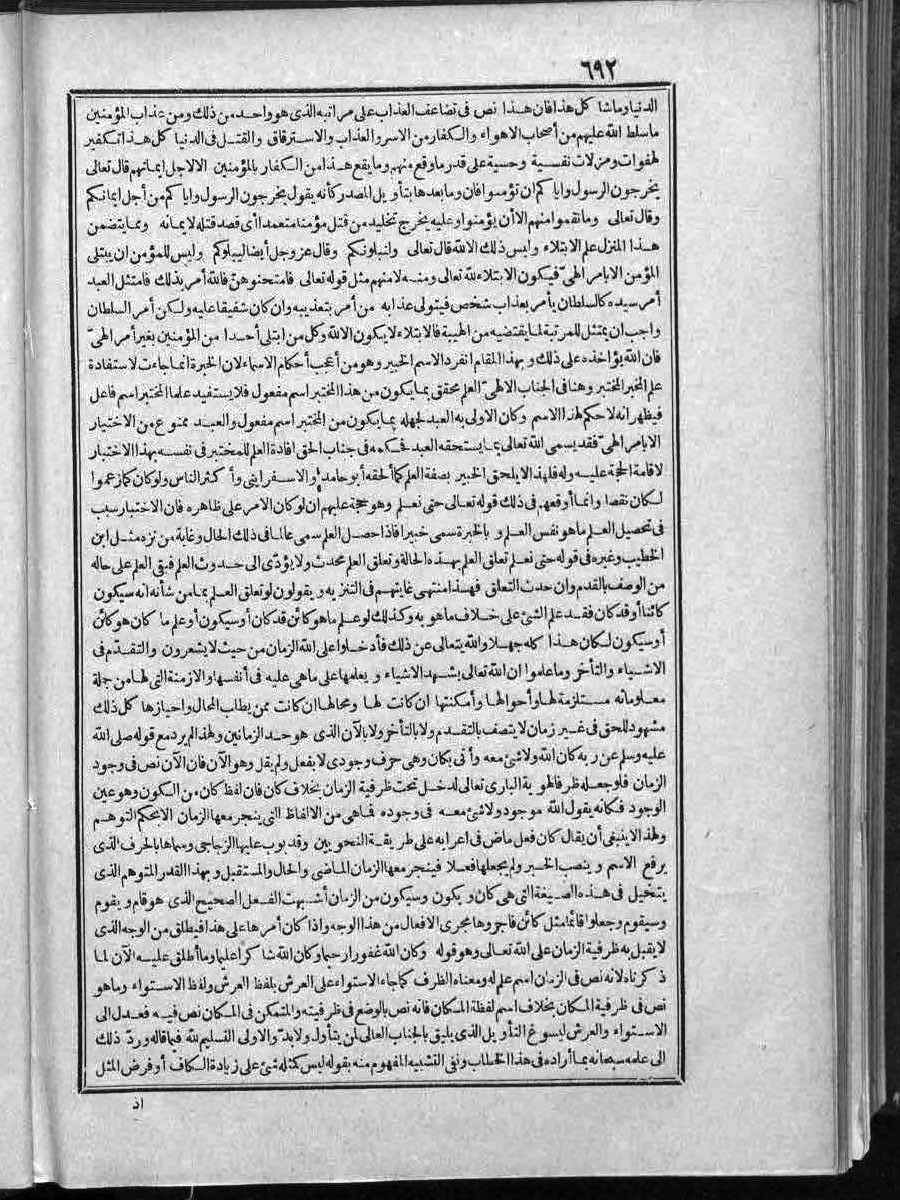 ٦٩٢
الدنيا وما شا كل هذا فان هذا نص فى تضاعف العذاب على مراتبه الذى هو واحد من ذلك ومن عذاب المؤمنين
ما سلط الله عليهم من أصحاب الاهواء والكفار من الاسر والعذاب والاسترقاق والقتل فى الدنيا كل هذا تكفير
لهفوات ومزلات نفسية وحسية على قدر ما وقع منهم وما يقع هذا من الكفار بالمؤمنين الالاجل ايمانهم قال تعالى
يخرجون الرسول وايا كم ان تؤمنوا فان وما بعدها بتأويل المصدر كأنه يقول يخرجون الرسول وايا كم من أجل ايمانكم
وقال تعالى وما نقموا منهم الا أن يؤمنوا وعليه يخرج تخليد من قتل مؤمنا متعمدا أى قصد قتله لايمانه ومما يتضمن
هذا المنزل علم الابتلاء وليس ذلك الا لله قال تعالى ولنبلونكم وقال عز وجل أيضا ليبلوكم وليس للمؤمن ان يبتلى
المؤمن الا بامر الهىّ فيكون الابتلاء لله تعالى ومنه لا منهم مثل قوله تعالى فامتحنوهنّ فالله أمر بذلك فامتثل العبد
أمر سيده كالسلطان يأمر بعذاب شخص فيتولى عذابه من أمر بتعذيبه وان كان شفيقا عليه ولكن أمر السلطان
واجب ان يمتثل للمرتبة لما يقتضيه من الهيبة فالابتلاء لا يكون الا لله وكل من ابتلى أحدا من المؤمنين بغير أمر الهىّ
فان الله يؤاخذه على ذلك وبهذا المقام انفرد الاسم الخبير وهو من أعجب أحكام الاسماء لان الخبرة انما جاءت لاستفادة
علم المخبر المختبر وهنا فى الجناب الالهىّ العلم محقق بما يكون من هذا المختبر اسم مفعول فلا يستفيد علما المختبر اسم فاعل
فيظهر انه لا حكم لهذا الاسم وكان الاولى به العبد لجهله بما يكون من المختبر اسم مفعول والعبد ممنوع من الاختبار
الا بامر الهىّ فقد يسمى الله تعالى بما يستحقه العبد فحكمه فى جناب الحق افادة العلم للمختبر فى نفسه بهذا الاختبار
لاقامة الحجة عليه وله فلهذا لا يلحق الخبير بصفة العلم كما ألحقه أبو حامد والاسفراينى وأكثر الناس ولو كان كما زعموا
لكان نقصا وانما أوقعهم فى ذلك قوله تعالى حتى نعلم وهو حجة عليهم ان لو كان الامر على ظاهره فان الاختبار سبب
فى تحصيل العلم ما هو نفس العلم وبالخبرة سمى خبيرا فاذا حصل العلم سمى عالما فى ذلك الحال وغاية من نزه مثل ابن
الخطيب وغيره فى قوله حتى نعلم تعلق العلم بهذه الحالة وتعلق العلم محدث ولا يؤدّى الى حدوث العلم فبقى العلم على حاله
من الوصف بالقدم وان حدث التعلق فهذا منتهى غايتهم فى التنزيه ويقولون لو تعلق العلم بما من شأنه انه سيكون
كائنا أو قد كان فقد علم الشئ على خلاف ما هو به وكذلك لو علم ما هو كائن قد كان أو سيكون أو علم ما كان هو كائن
أو سيكون لكان هذا كله جهلا والله يتعالى عن ذلك فأدخلوا على الله الزمان من حيث لا يشعرون والتقدّم فى
الاشياء والتأخر وما علموا ان الله تعالى يشهد الاشياء ويعلمها على ما هى عليه فى أنفسها والازمنة التى لها من جملة
معلوماته مستلزمة لها وأحوالها وأمكنتها ان كانت لها ومحالها ان كانت ممن يطلب المحال واحيازها كل ذلك
مشهود للحق فى غير زمان لا يتصف بالتقدم ولا بالتأخر ولا بالآن الذى هو حد الزمانين ولهذا لم يرد مع قوله صلى الله
عليه وسلم عن ربه كان الله ولا شئ معه وأتى بكان وهى حرف وجودى لا بفعل ولم يقل وهو الآن فان الآن نص فى وجود
الزمان فلو جعله ظرفا لهوية البارى تعالى لدخل تحت ظرفية الزمان بخلاف كان فان لفظ كان من الكون وهو عين
الوجود فكانه يقول الله موجود ولا شئ معه فى وجوده فما هى من الالفاظ التى ينجر معها الزمان الا بحكم التوهم
ولهذا لا ينبغى أن يقال كان فعل ماض فى اعرابه على طريقة النحويين وقد بوب عليها الزجاجى وسماها بالحرف الذى
يرفع الاسم وينصب الخبر ولم يجعلها فعلا فينجر معها الزمان الماضى والحال والمستقبل وبهذا القدر المتوهم الذى
يتخيل فى هذه الصيغة التى هى كان ويكون وسيكون من الزمان أشبهت الفعل الصحيح الذى هو قام ويقوم
وسيقوم وجعلوا قائما مثل كائن فاجروها مجرى الافعال من هذا الوجه واذا كان أمرها على هذا فيطلق من الوجه الذى
لا يقبل به ظرفية الزمان على الله تعالى وهو قوله وكان الله غفورا رحيما وكان الله شاكرا عليما وما أطلق عليه الآن لما
ذكرناه لانه نص فى الزمان اسم علم له ومعناه الظرف كما جاء الاستواء على العرش بلفظ العرش ولفظ الاستواء وما هو
نص فى ظرفية المكان بخلاف اسم لفظة المكان فانه نص بالوضع فى ظرفيته والمتمكن فى المكان نص فيه فعدل الى
الاستواء والعرش ليسوغ التأويل الذى يليق بالجناب العالى لمن يتأول ولا بدّ والاولى التسليم لله فيما قاله وردّ ذلك
الى علمه سبحانه بما أراده فى هذا الخطاب ونفى التشبيه المفهوم منه بقوله ليس كمثله شئ على زيادة الكاف أو فرض المثل
اذ